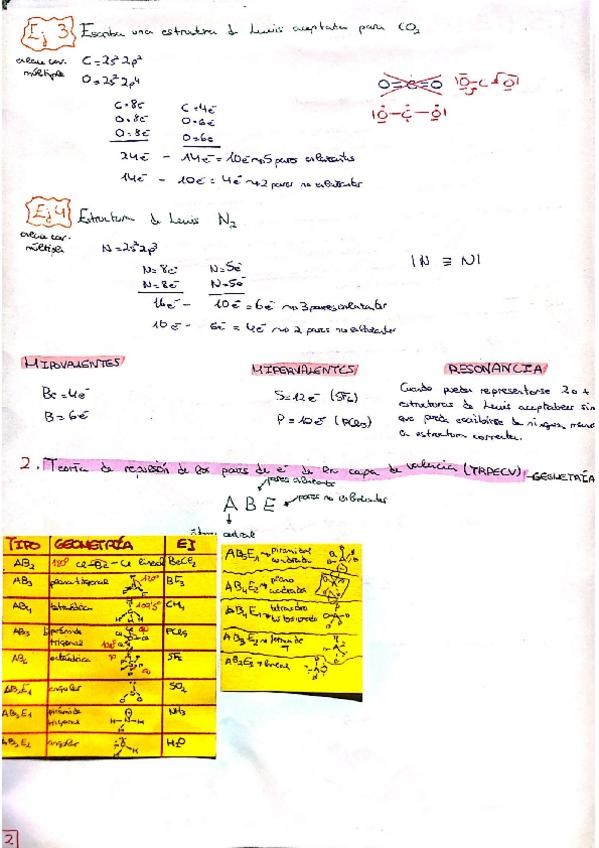 Ej 3 Escriba una estructura de Lewis aceptable para CO₂
C = 2s² 2p²
múltiple
O = 2s² 2p⁴
O = C = O
|O - C - O|
C = 8e⁻ C = 4e⁻
O = 8e⁻ O = 6e⁻
O = 8e⁻ O = 6e⁻
24e⁻ - 14e⁻ = 10e⁻ → 5 pares enlazantes
14e⁻ - 10e⁻ = 4e⁻ → 2 pares no enlazantes
Ej 4 Estructura de Lewis N₂
múltiple
N = 2s² 2p³
|N ≡ N|
N = 8e⁻ N = 5e⁻
N = 8e⁻ N = 5e⁻
16e⁻ - 10e⁻ = 6e⁻ → 3 pares enlazantes
10e⁻ - 6e⁻ = 4e⁻ → 2 pares no enlazantes
HIPOVALENTES
Be = 4e⁻
B = 6e⁻
HIPERVALENTES
S = 12e⁻ (SF₆)
P = 10e⁻ (PCl₅)
RESONANCIA
Cuando pueden representarse 2 o +
estructuras de Lewis aceptables sin
que pueda escribirse de ninguna manera
la estructura correcta.
2. Teoría de repulsión de los pares de e⁻ de la capa de valencia (TRPECV) - GEOMETRÍA
pares enlazante
A B E pares no enlazantes
átomo central
TIPO GEOMETRÍA EJ
AB₂ 180° Cl-Be-Cl lineal BeCl₂
AB₃ plana trigonal 120° BF₃
AB₄ tetraédrica 109'5° CH₄
AB₅ bipirámide trigonal 120° PCl₅
AB₆ octaédrica SF₆
AB₂E₁ angular SO₂
AB₃E₁ pirámide trigonal NH₃
AB₂E₂ angular H₂O
AB₅E₁ → piramidal cuadrada
AB₄E₂ → plano cuadrada
AB₄E₁ → tetraedro distorsionado
AB₃E₂ → forma de T
AB₂E₃ → lineal
2